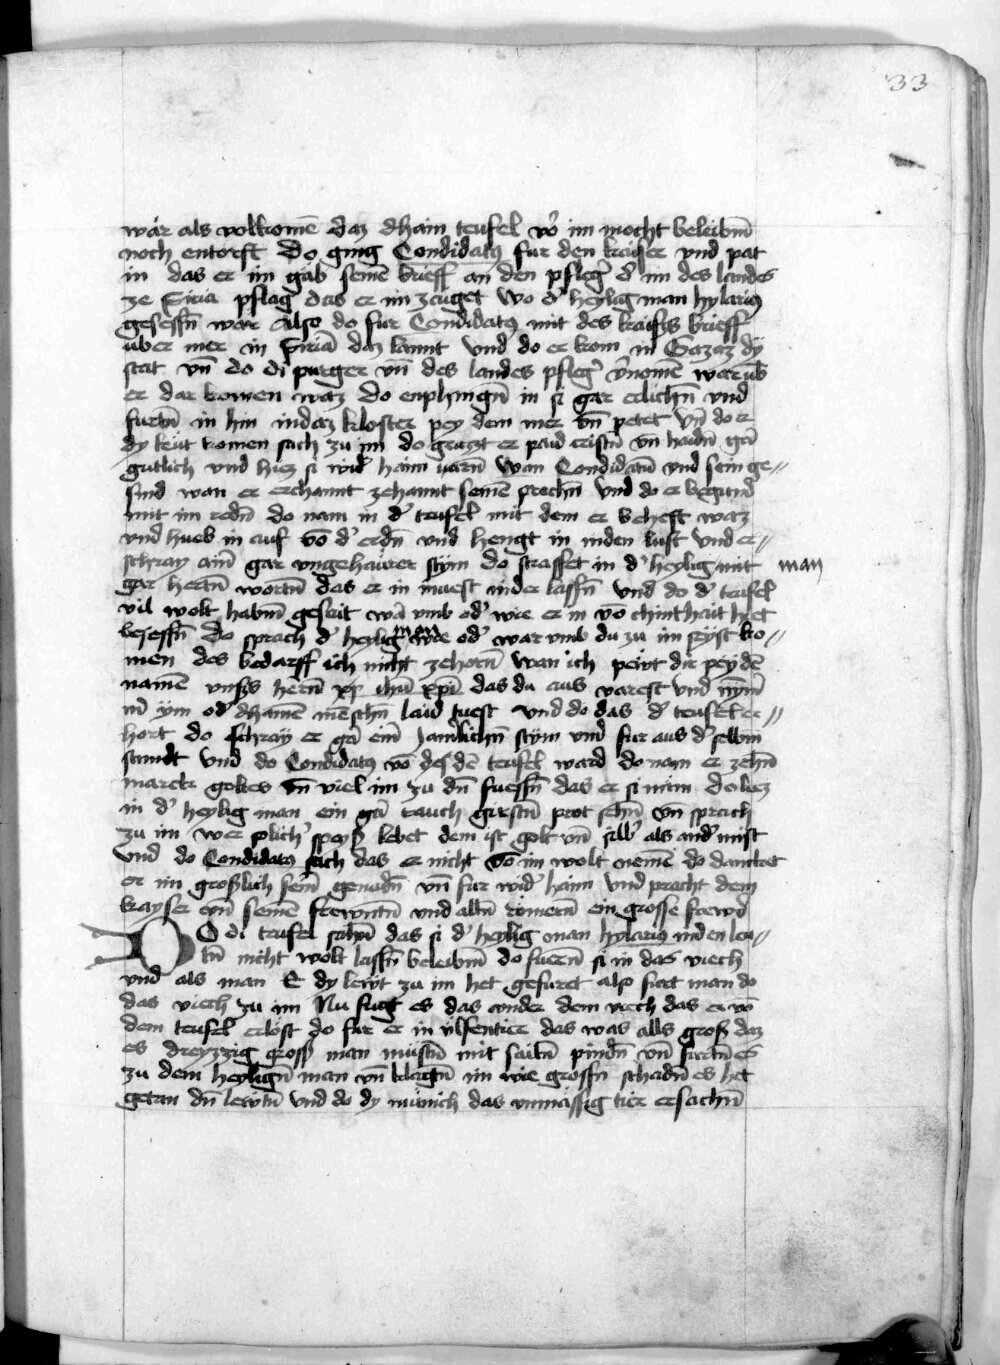 33
wär als volkomē daz dhain teufel vor im mocht beleibm̄
noch entorft Do ging Condidatꝯ fur den kaiser vnd pat
in das er im gäb semē brieff an den pflegˀ dˀ im des landes
ze Siria pflag das er im zeuget wo dˀ heylig man hylariꝯ
gesessn̄ wär Also do fur Condidatꝯ mit des kaisˀs brieff
über mer in Siriā daz lannt vnd do er kom in Gazaz dy
stat vn̄ do di purger vn̄ des landes pflegˀ vˀnomē warūb
er dar komen waz do enphingn̄ in si gar erlichn̄ vnd
furtn̄ in hin indaz kloster pey dem mer vn̄ petet vn̄ do er
dy leut komen sach zu im do gruzt er paid cristn̄ vn̄ haidn̄ gar
gutlich vnd hiez si widˀ haim varn̄ wan Condidatū vnd sein ge-
sind wan er erchannt zehannt semē prechn̄ vnd do er begund
mit im redn̄ do nam in dˀ teufel mit dem er beheft waz
vnd hueb in auf vō dˀ erdn̄ vnd hengt in inden luft vnd er-
schray ain̄ gar vngehäurer stym do straffet in dˀ heylig man mit
gar hertn̄ wortn̄ das er in muest nider lassn̄ vnd do dˀ teufel
vil wolt habm̄ geseit wā vmb odˀ wie er in vō chinthait het
besessn̄ do sprach dˀ heylig man wie odˀ war vmb du zu im seyst ko-
men des bedarff ich nicht zehorn̄ wan ich pewt dir pey dē
namē vnsˀs hern̄ ihū xp̄i das du aus varest vnd nȳmˀ
mˀ ym odˀ dhamē mēschn̄ laid tuest vnd do das dˀ teufel er-
hort do schray er gar eim̄ Jamˀlichn̄ stym vnd fur aus dˀ selbm
stundt vnd do Condidatꝯ vō des dē teufel ward do nam er zehn̄
marck goltes vn̄ viel im zu dn̄ fuessn̄ das er si näm do liez
in dˀ heylig man ein gar rauch grestn̄ prot sehn̄ vn̄ sprach
zu im wer solichˀ speyß lebet dem ist golt vn̄ silbˀ als andˀ mist
vnd do Condidatꝯ sach das er nicht vō im wolt nemē do danckt
er im großlich semˀ genadn̄ vn̄ fur widˀ haim vnd pracht dem
kayser vn̄ semē frewntn̄ vnd alln̄ römern̄ ein grosse frewd
DO di teufel sahn̄ das si dˀ heylig man hylariꝯ inden leu-
tn̄ nicht wolt lassn̄ beleibm̄ do fuern̄ si in das viech
vnd als man E dy lewt zu im het gefuret also furt man do
das viech zu im Nu fugt es das under dem viech das er vō
dem teufel erlöst do fur er in ūlfentier das was alls groß daz
es dreyzzig groß man müstn̄ mit sailn̄ pindn̄ vn̄ furtn̄ es
zu dem heylign̄ man vn̄ klagtn̄ im wie grossn̄ schadn̄ es het
getan dn̄ lewtn̄ vnd do dy münich das vnmässig tier ersachn̄